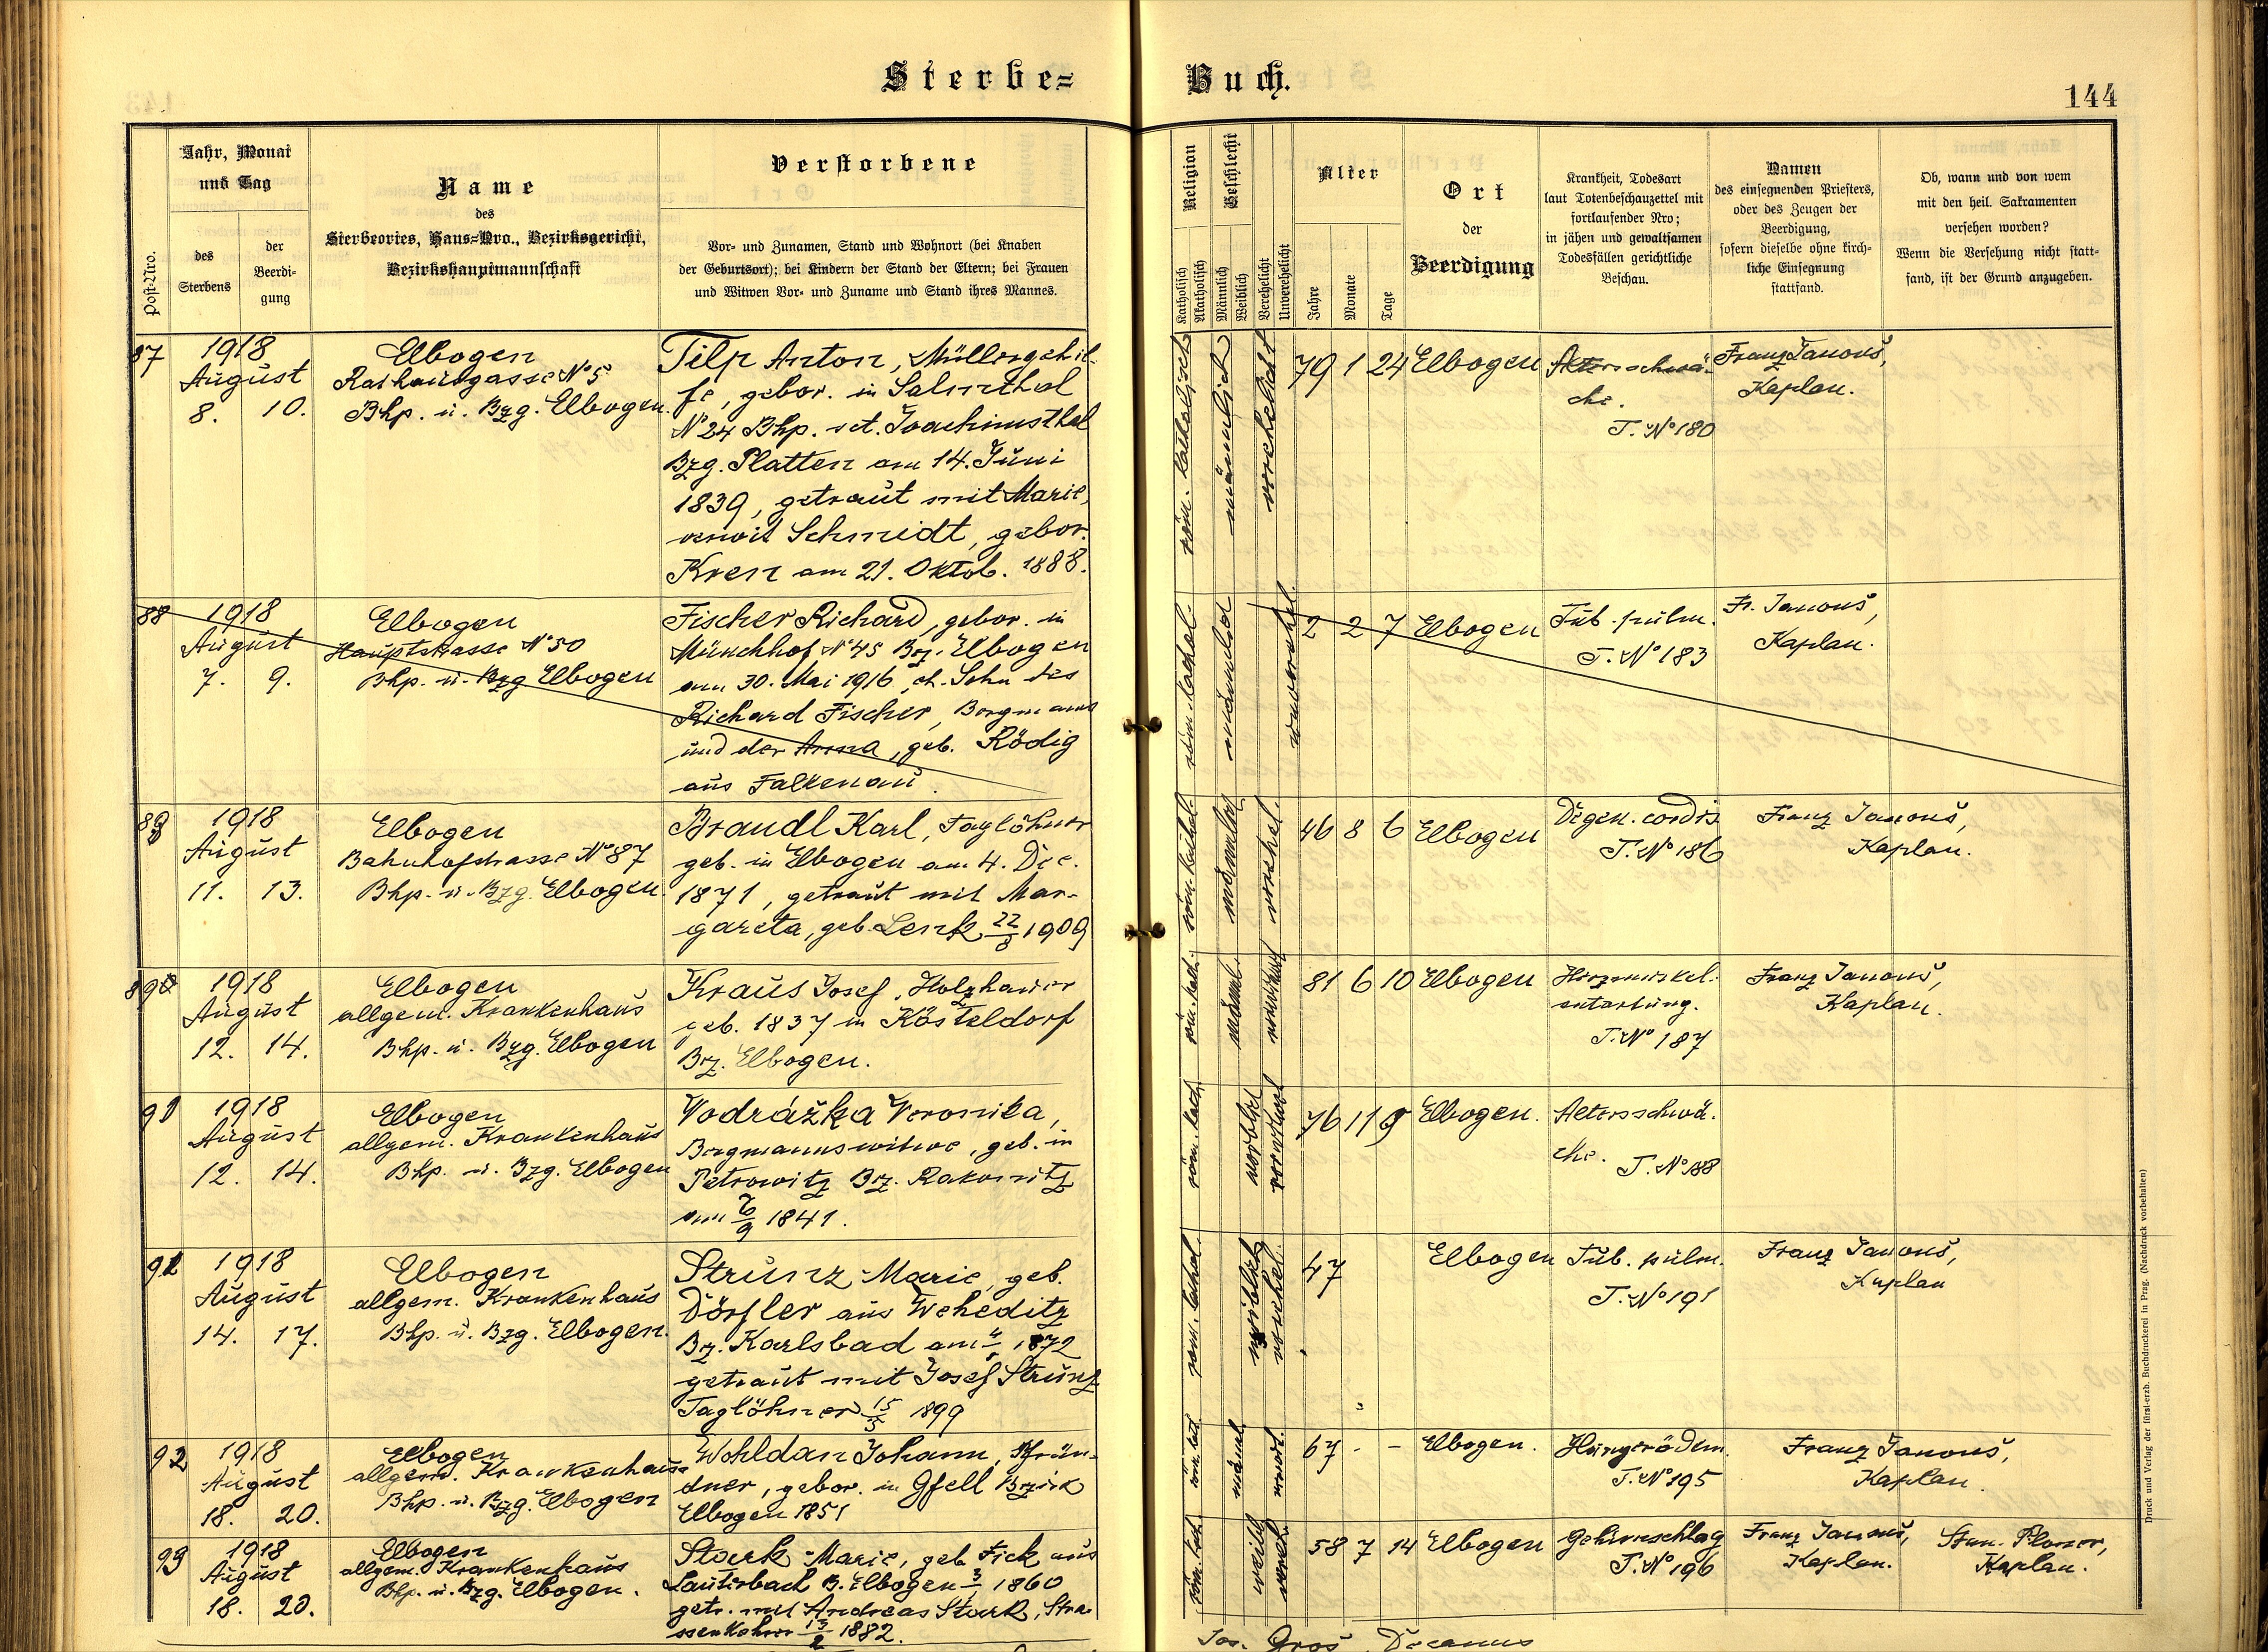 Sterbe-
Buch.
144
Post-Nro.
Jahr, Monat
und Tag
des
Sterbens
der
Beerdi-
gung
Name
des
Sterbeortes, Haus-Nro., Bezirksgericht,
Bezirkshauptmannschaft
Verstorbene
Vor- und Zunamen, Stand und Wohnort (bei Knaben
der Geburtsort); bei Kindern der Stand der Eltern; bei Frauen
und Witwen Vor- und Zuname und Stand ihres Mannes.
Religion
Katholisch
Akatholisch
Geschlecht
Männlich
Weiblich
Verehelicht
Unverehelicht
Alter
Jahre
Monate
Tage
Ort
der
Beerdigung
Krankheit, Todesart
laut Totenbeschauzettel mit
fortlaufender Nro;
in jähen und gewaltsamen
Todesfällen gerichtliche
Beschau.
Namen
des einsegnenden Priesters,
oder des Zeugen der
Beerdigung,
sofern dieselbe ohne kirch-
liche Einsegnung
stattfand.
Ob, wann und von wem
mit den heil. Sakramenten
versehen worden?
Wenn die Versehung nicht statt-
fand, ist der Grund anzugeben.
87
1918
August
8. 10.
Elbogen
Rathausgasse No 5
Bhp. u. Bzg. Elbogen.
Tilp Anton, Müllergehil-
fe, gebor. in Salmthal
No 24 Bhp. St. Joachimsthal
Bzg. Platten am 14. Juni
1839, getraut mit Marie,
verwit Schmidt, gebor.
Kren am 21. Oktob. 1888.
röm. katholisch
männlich
verehelicht
79 1 24
Elbogen
Altersschwä-
che.
T. No 180
Franz Janouš,
Kaplan.
88
1918
August
7. 9.
Elbogen
Hauptstrasse No 50
Bhp. u. Bzg Elbogen
Fischer Richard, gebor. in
Münchhof No 45 Bz. Elbogen
am 30. Mai 1916, eh. Sohn des
Richard Fischer, Bergmanns
und der Anna, geb. Rödig
aus Falkenau.
röm. kathol.
männlich
unverehel.
2 2 7
Elbogen
Tub. pulm.
T. No 183
Fr. Janouš,
Kaplan.
1918
August
11. 13.
Elbogen
Bahnhofstrasse No 87
Bhp. u. Bzg. Elbogen.
Brandl Karl, Taglöhner
geb. in Elbogen am 4. Dec.
1871, getraut mit Mar-
gareta, geb. Lenk 22/8 1909
röm. kathol.
männlich
verehel.
46 8 6
Elbogen
Degen. cordis
T. No 186
Franz Janouš,
Kaplan.
1918
August
12. 14.
Elbogen
allgem. Krankenhaus
Bhp. u. Bzg. Elbogen
Kraus Josef, Holzhauer
geb. 1837 in Kösteldorf
Bz. Elbogen.
röm. kath.
männl.
81 6 10
Elbogen
Herzmuskel-
entartung.
T. No 187
Franz Janouš,
Kaplan.
1918
August
12. 14.
Elbogen
allgem. Krankenhaus
Bhp. u. Bzg. Elbogen
Vodrážka Veronika,
Bergmannswitwe, geb. in
Petrowitz Bz. Rakonitz
am 6/9 1841.
röm. kath.
weiblich
verwitwet
76 11 9
Elbogen.
Altersschwä-
che.
T. No 188
1918
August
14. 17.
Elbogen
allgem. Krankenhaus
Bhp. u. Bzg. Elbogen.
Strunz Marie, geb.
Dörfler aus Weheditz
Bz. Karlsbad am 1872
getraut mit Josef Strunz
Taglöhner 15/5 1899
röm. kathol.
weiblich
verehel.
47
Elbogen
Tub. pulm.
T. No 191
Franz Janouš,
Kaplan
92
1918
August
18. 20.
Elbogen
allgem. Krankenhaus
Bhp. u. Bzg. Elbogen
Wohldan Johann, Pfrün-
dner, gebor. in Gfell Bzirk
Elbogen 1851
röm. kat.
männl.
67 - -
Elbogen.
Hungerödem.
T. No 195
Franz Janouš,
Kaplan.
93
1918
August
18. 20.
Elbogen
allgem. Krankenhaus
Bhp. u. Bzg. Elbogen.
Stark Marie, geb. Fick aus
Lauterbach B. Elbogen 1860
getr. mit Andreas Stark, Stra-
ssenkehrer 13/2 1882.
röm. kath.
weibl.
vereh.
58 7 14
Elbogen
Gehirnschlag
T. No 196
Franz Janouš,
Kaplan.
Kaplan.
Jos. Groš, Decanus
Druck und Verlag der fürst-erzb. Buchdruckerei in Prag. (Nachdruck vorbehalten)